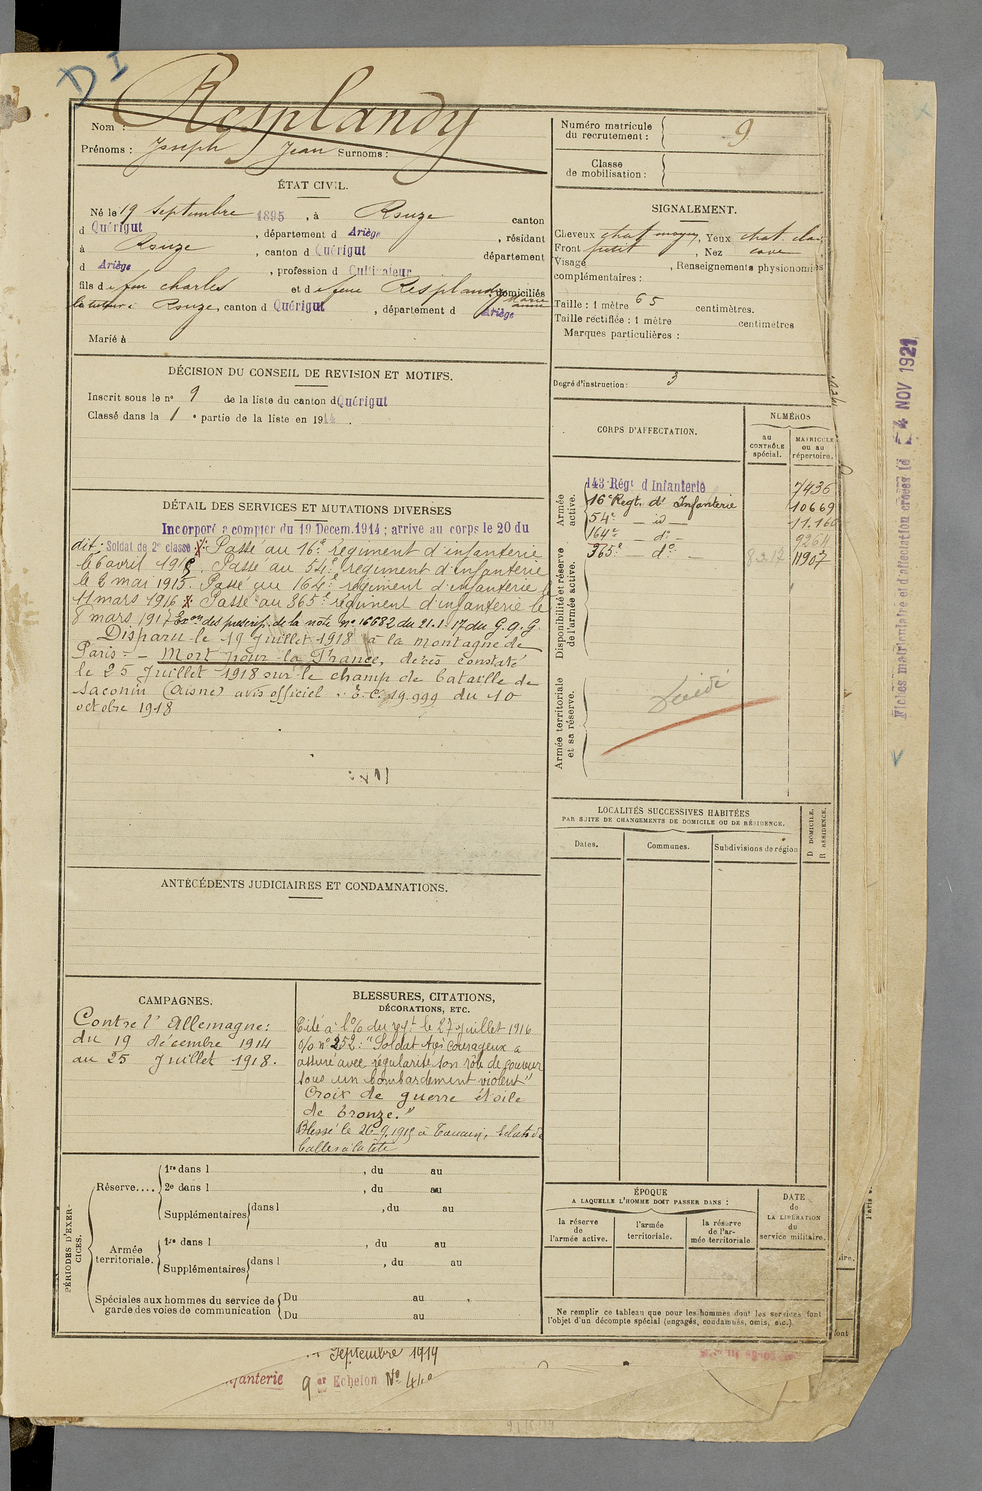 D I
Nom : Resplandy
Prénoms : Joseph Jean Surnoms :
ÉTAT CIVIL.
Né le 19 Septembre 1895, à Rouze canton
d Quérigut, département d Ariège, résidant
à Rouze, canton d Quérigut département
d Ariège, profession d Cultivateur
fils de feu Charles et de feue Resplandy Marie Anne domiciliés
à Rouze, canton d Quérigut, département d Ariège
Marié à
DÉCISION DU CONSEIL DE REVISION ET MOTIFS.
Inscrit sous le n° 9 de la liste du canton d Quérigut
Classé dans la 1e partie de la liste en 1914.
DÉTAIL DES SERVICES ET MUTATIONS DIVERSES
Incorporé a compter du 19 Décem. 1914 ; arrive au corps le 20 du
dit; Soldat de 2e classe. Passé au 16e régiment d'infanterie
le 6 avril 1915. Passé au 54e régiment d'infanterie
le 6 mai 1915. Passé au 164e régiment d'infanterie le
11 mars 1916. Passé au 365e régiment d'infanterie le
8 mars 1917 Ex on des prescrip. de la note n° 16682 du 21.1.17 du G.Q.G.
Disparu le 19 Juillet 1918 à la montagne de
Paris - Mort pour la France, décès constaté
le 25 Juillet 1918 sur le champ de bataille de
Saconin (Aisne) avis officiel E.C. 19.999 du 10
octobre 1918
ANTÉCÉDENTS JUDICIAIRES ET CONDAMNATIONS.
CAMPAGNES.
Contre l'Allemagne:
du 19 décembre 1914
au 25 Juillet 1918.
BLESSURES, CITATIONS,
DÉCORATIONS, ETC.
Cité à l'o/ du rgt le 27 juillet 1916
o/o n° 252: "Soldat très courageux a
assuré avec régularité son rôle de coureur
sous un bombardement violent"
Croix de guerre étoile
de bronze."
Blessé le 26-9-1915 à Éclats de
balles à la tête
PÉRIODES D'EXERCICES.
Réserve....
1re dans l , du au
2e dans l , du au
Supplémentaires dans l , du au
Armée territoriale.
1re dans l , du au
Supplémentaires dans l , du au
Spéciales aux hommes du service de
garde des voies de communication
Du au
Du au
Numéro matricule
du recrutement : 9
Classe
de mobilisation :
SIGNALEMENT.
Cheveux chat moyen, Yeux chat clair
Front petit, Nez cave
Visage , Renseignements physionomiques
complémentaires :
Taille : 1 mètre 65 centimètres.
Taille rectifiée : 1 mètre centimètres
Marques particulières :
Degré d'instruction : 3
CORPS D'AFFECTATION.
NUMÉROS
au
CONTRÔLE
spécial.
MATRICULE
ou au
répertoire.
Armée
active.
143 Régt d'Infanterie 7436
16e Regt. d' Infanterie 10669
54e — id — 11.160
164e — d° — 9264
365e — d° — 11907
Disponibilité et réserve
de l'armée active.
Armée territoriale
et sa réserve.
LOCALITÉS SUCCESSIVES HABITÉES
PAR SUITE DE CHANGEMENTS DE DOMICILE OU DE RÉSIDENCE.
Dates.
Communes.
Subdivisions de région
D DOMICILE.
R RÉSIDENCE.
ÉPOQUE
A LAQUELLE L'HOMME DOIT PASSER DANS :
la réserve
de
l'armée active.
l'armée
territoriale.
la réserve
de l'ar-
mée territoriale
DATE
de
LA LIBÉRATION
du
service militaire.
Ne remplir ce tableau que pour les hommes dont les services font
l'objet d'un décompte spécial (engagés, condamnés, omis, etc.).
Fiches matriculaire et d'affectation créées le -4 NOV 1921
Septembre 1914
fanterie 9 er Echelon N°